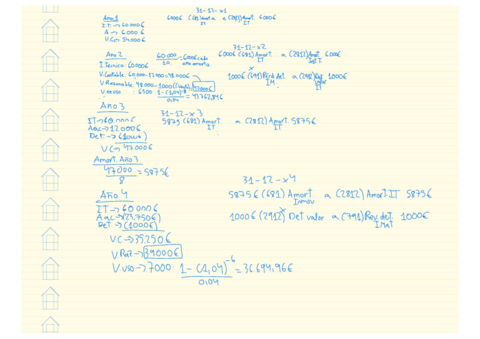 31-12-x1
Año 1 6000€ (681) Amort. IT a (2812) Amort. IT 6000€
IT → 60.000€
A → 6.000€
VC → 54.000€
31-12-x2
Año 2 60.000/10 = 6000€ cada 6000€ (681) Amort. IT a (2812) Amort. IT 6000€
I.Técnica: 60.000€
x
V.Contable: 60.000-12.000=48.000€ 1000€ (691) Pérd. det. IM. a (291) 1000€
V.Razonable: 48.000-1000 47.000€
V. en uso: 6500 1-(1,04)^-8/0,04 = 43.762,84€
Año 3
31-12-x3
IT → 60.000€ 5875 (681) Amort. IT a (2812) Amort. IT 5875€
Aac → 12.000€
Det → (1000€)
VC → 47.000€
Amort. Año 3
47.000/8 = 5875€
31-12-x4
Año 4 5875€ (681) Amort. Inmov a (2812) Amort. IT 5875€
IT → 60.000€
Aac → (23.750€)
x
Det → (1000€) 1000€ (2912) Det. valor a (791) Rev. det. IMat 1000€
VC → 35.250€
V Raz → 39000€
V uso → 7000 1-(1,04)^-6/0,04 = 36694,96€